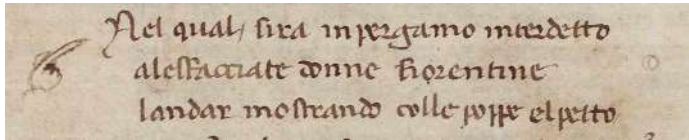 Nel qual sira in pergamo interdetto
alessacciate donne fiorentine
landar mostrando colle poppe el petto